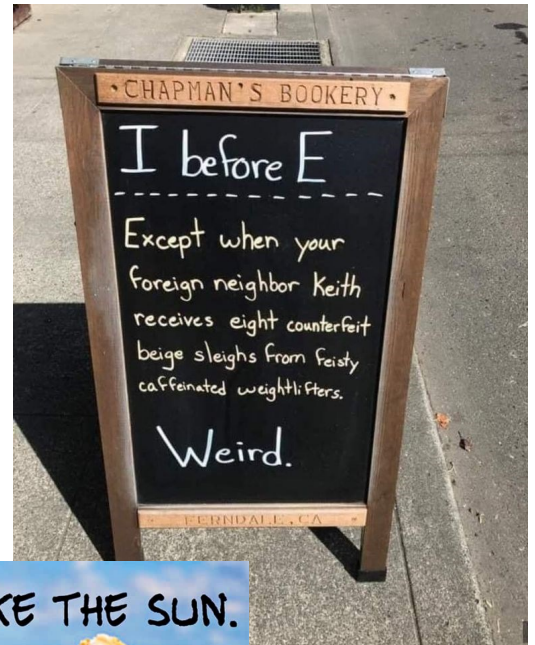 CHAPMAN'S BOOKERY
I before E
Except when your
foreign neighbor Keith
receives eight counterfeit
beige sleighs from feisty
caffeinated weightlifters.
Weird.
FERNDALE, CA
KE THE SUN.